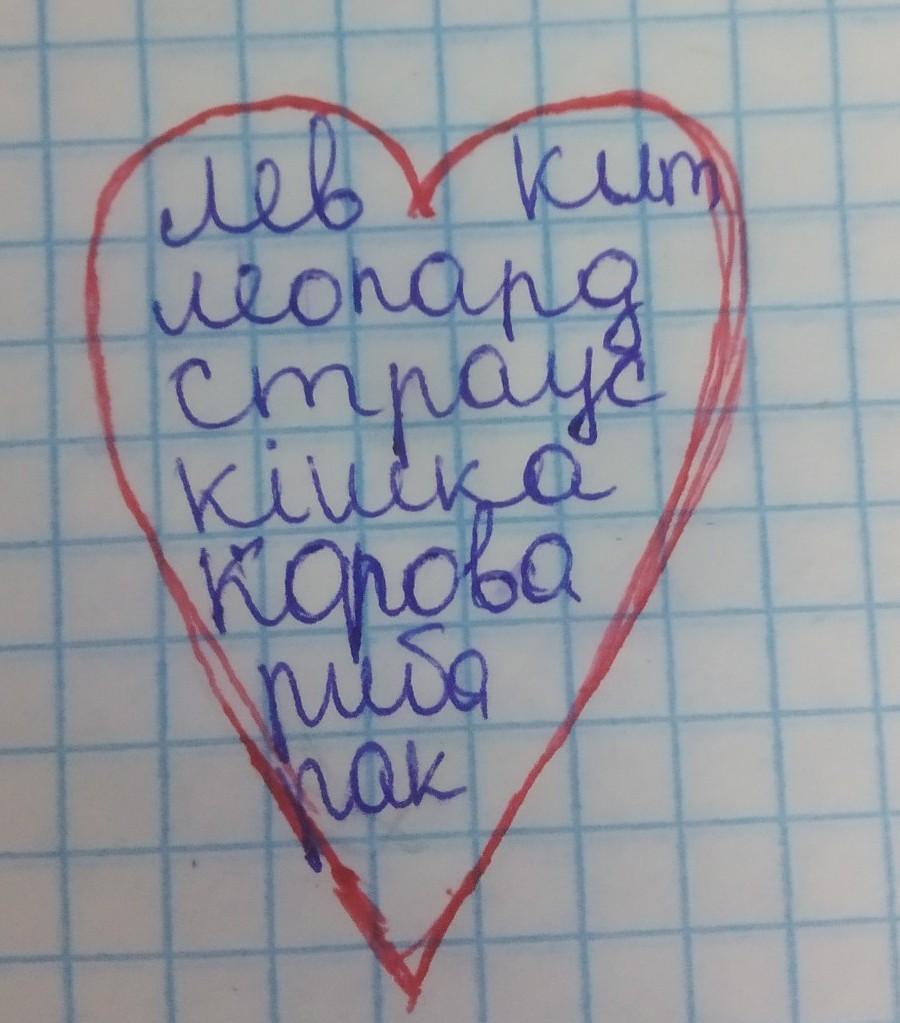 лев кит
леопард
страус
кішка
корова
риба
рак